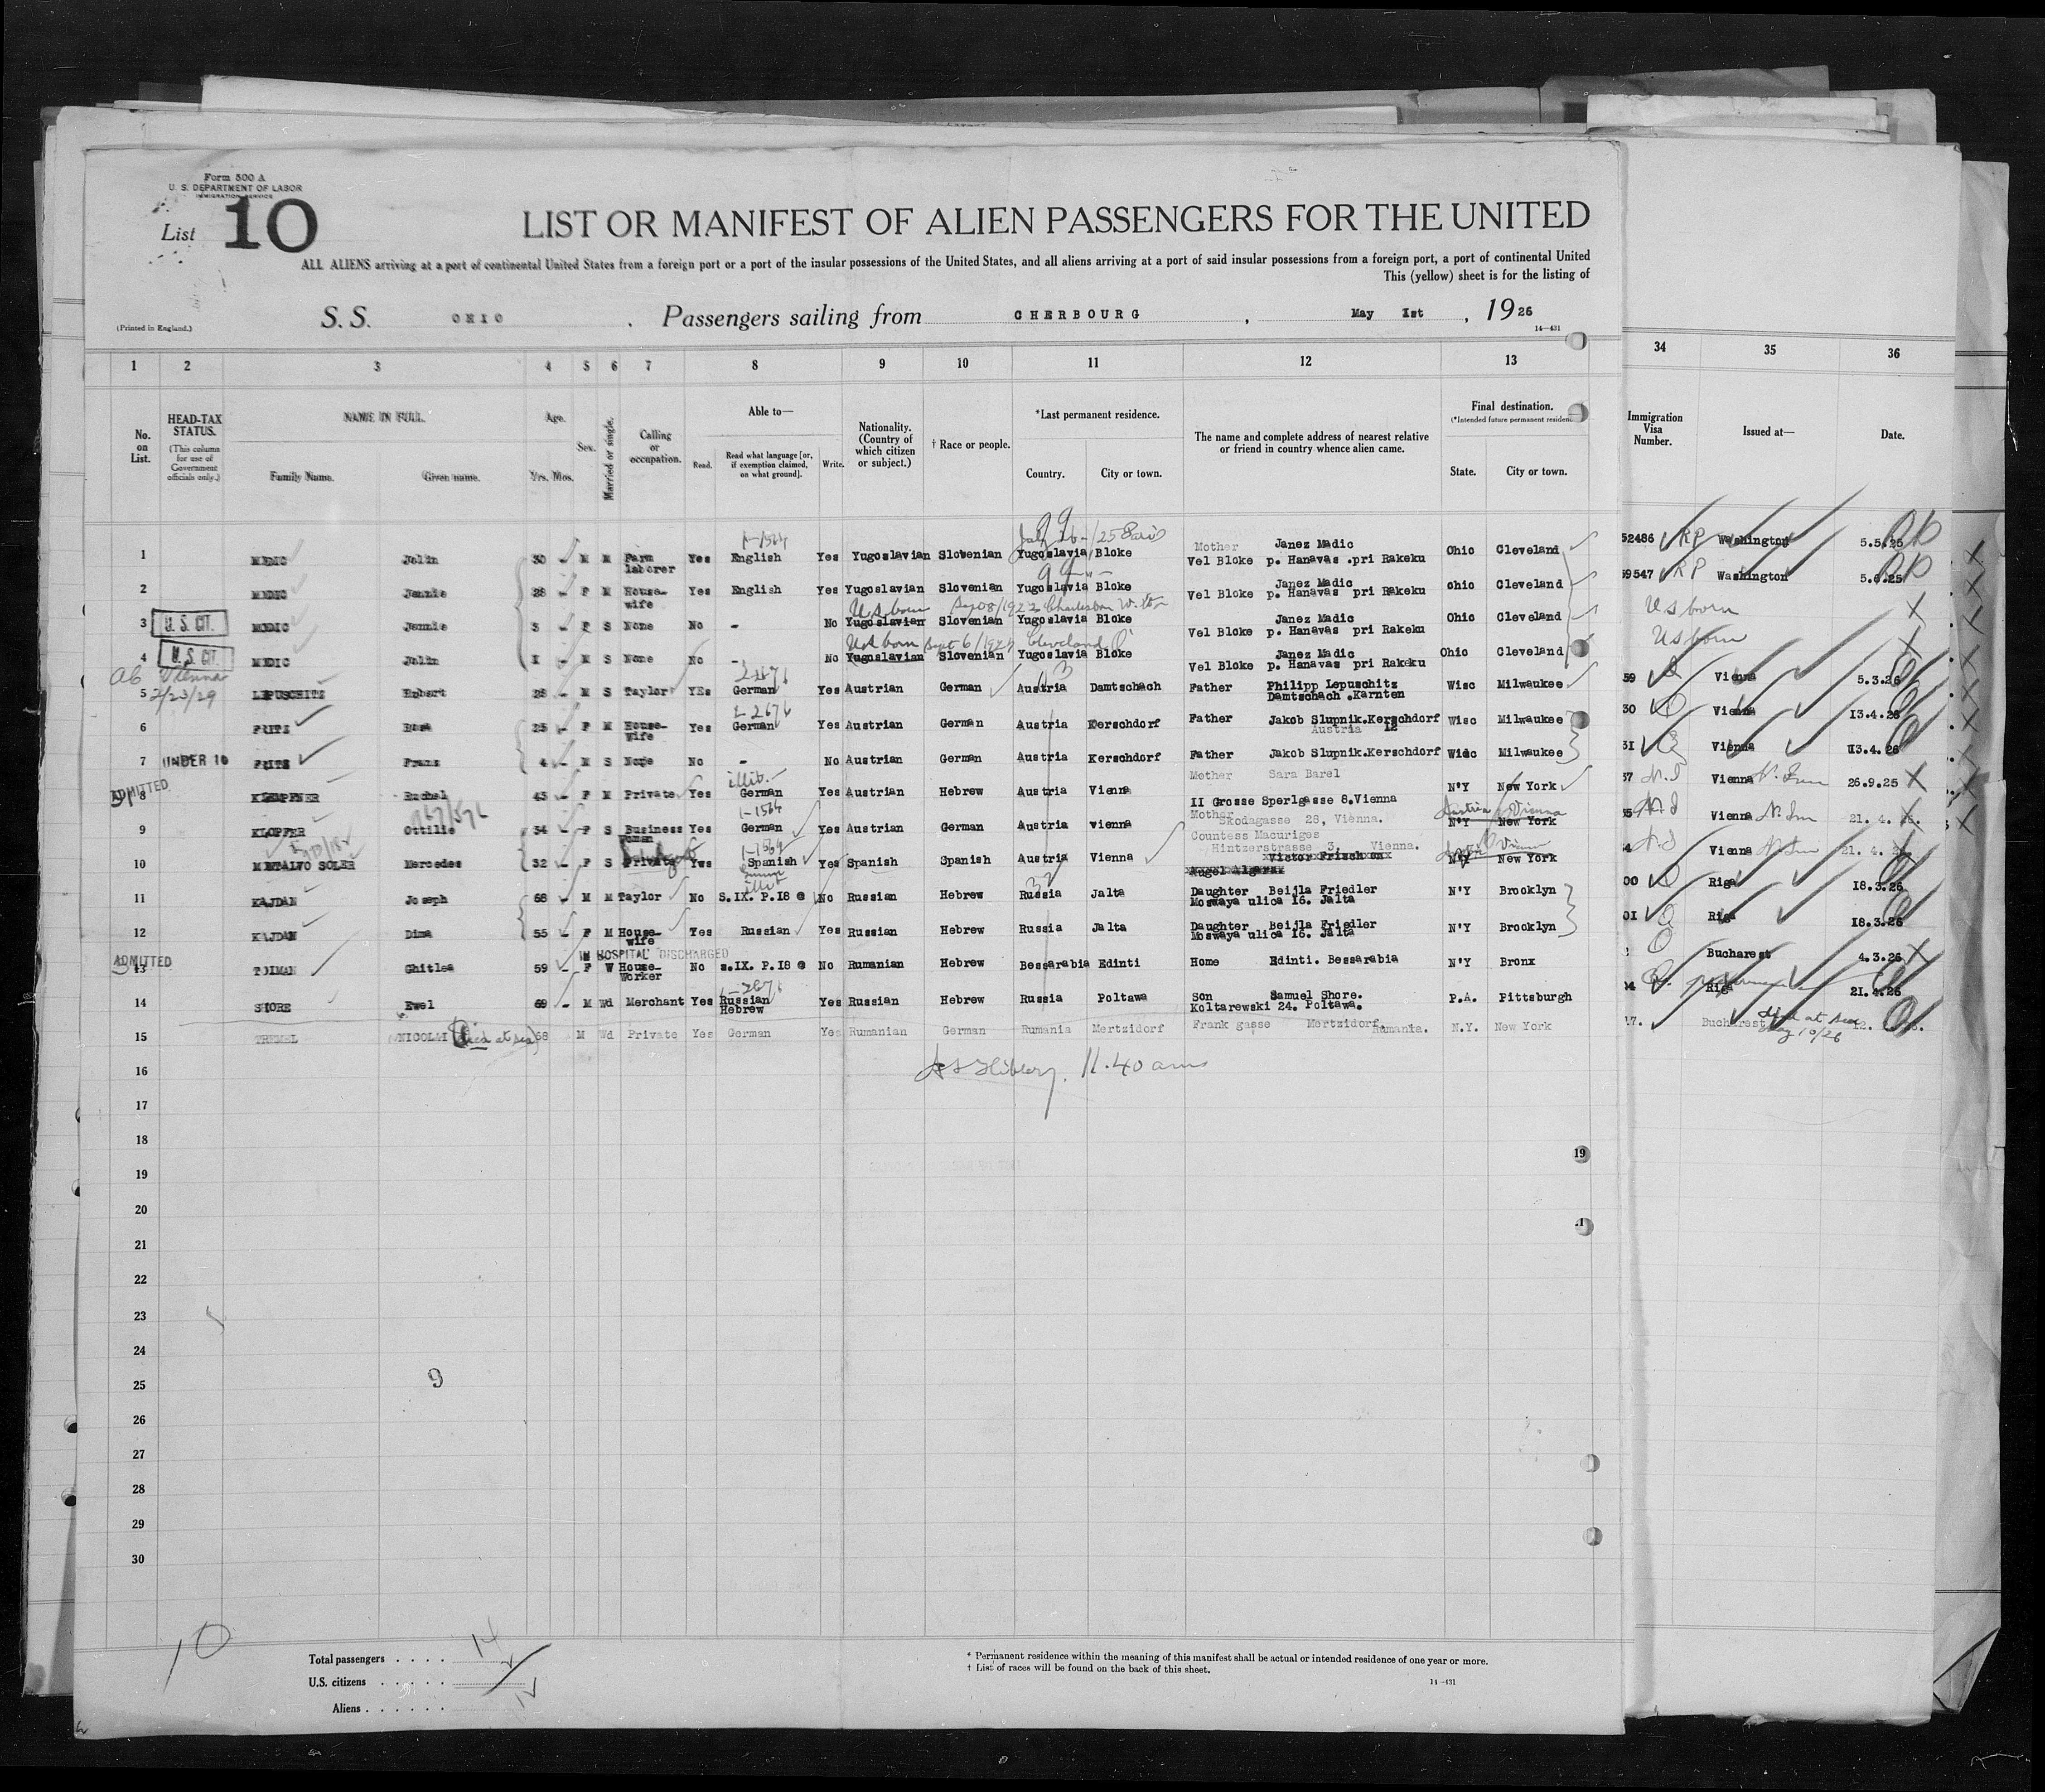 Form 500 A
U. S. DEPARTMENT OF LABOR
IMMIGRATION SERVICE
List 10
LIST OR MANIFEST OF ALIEN PASSENGERS FOR THE UNITED
ALL ALIENS arriving at a port of continental United States from a foreign port or a port of the insular possessions of the United States, and all aliens arriving at a port of said insular possessions from a foreign port, a port of continental United
This (yellow) sheet is for the listing of
(Printed in England.)
S. S. OHIO . Passengers sailing from CHERBOURG , May Ist , 1926
14—431
1 2 3 4 5 6 7 8 9 10 11 12 13 34 35 36
No. on List.
HEAD-TAX STATUS.
(This column for use of Government officials only.)
NAME IN FULL.
Family Name. Given name.
Age.
Yrs. Mos.
Sex.
Married or single.
Calling or occupation.
Able to—
Read. Read what language [or, if exemption claimed, on what ground]. Write.
Nationality. (Country of which citizen or subject.)
† Race or people.
*Last permanent residence.
Country. City or town.
The name and complete address of nearest relative or friend in country whence alien came.
Final destination.
(*Intended future permanent residence)
State. City or town.
Immigration Visa Number.
Issued at—
Date.
1 MEDIC 30 M M Farm laborer Yes English Yes Yugoslavian Slovenian Yugoslavia Bloke Mother Janez Madic Vel Bloke p. Hanavas .pri Rakeku Ohio Cleveland 52486 RP Washington 5.5.25
2 MEDIC Jennie 28 F M House-wife Yes English Yes Yugoslavian Slovenian Yugoslavia Bloke Janez Madic Vel Bloke p. Hanavas pri Rakeku ohio Cleveland 59547 RP Washington
US born 1922 Charleston
3 U. S. CIT. MEDIC Jennie 3 F S None No - No Yugoslavian Slovenian Yugoslavia Bloke Janez Madic Vel Bloke p. Hanavas pri Rakeku Ohio Cleveland US born
US born Sept 6/1924 Cleveland O
4 U. S. CIT. MEDIC I M S None No - No Yugoslavian Slovenian Yugoslavia Bloke Janez Madic Vel Bloke p. Hanavas pri Rakeku Ohio Cleveland US born
Vienna
2/23/29
5 LEPUSCHITZ 28 M S Taylor YEs German Yes Austrian German Austria Damtschach Father Philipp Lepuschitz Damtschach .Karnten Wisc Milwaukee 59 Vienna 5.3.26
6 FRITZ Rosa 25 F M House-wife Yes German Yes Austrian German Austria Kerschdorf Father Jakob Slupnik.Kerschdorf 12 Austria Wisc Milwaukee 30 Vienna I3.4.26
7 UNDER 16 FRITZ Franz 4 M S None No - No Austrian German Austria Kerschdorf Father Jakob Slupnik.Kerschdorf Wisc Milwaukee 3I Vienna I3.4.26
ADMITTED
8 Rachel 43 F M Private Yes German Yes Austrian Hebrew Austria Vienna Mother Sara Barel II Grosse Sperlgasse 8.Vienna N'Y New York 57 Vienna 26.9.25
9 KLOPFER Ottilie 34 F S Business woman Yes German Yes Austrian German Austria vienna Mother Skodagasse 28, Vienna. N'Y New York Austria Vienna Vienna 21. 4.
10 MONTALVO SOLER Mercedes 32 F S Private Yes Spanish Yes Spanish Spanish Austria Vienna Countess Macuriges Hintzerstrasse 3, Vienna. N'Y New York Vienna 21. 4.
11 KAJDAN Joseph 68 M M Taylor No S.IX. P.I8 @ No Russian Hebrew Russia Jalta Daughter Beijla Friedler Moswaya ulica I6. Jalta N'Y Brooklyn 00 Riga I8.3.26
12 KAJDAN Dina 55 F M House-wife Yes Russian Yes Russian Hebrew Russia Jalta Daughter Beijla Friedler Moswaya ulica I6. Jalta N'Y Brooklyn 0I Riga I8.3.26
ADMITTED IN HOSPITAL DISCHARGED
13 TOIMAN Ghitlea 59 F W House-Worker No s.IX. P.I8 @ No Rumanian Hebrew Bessarabia Edinti Home Edinti. Bessarabia N'Y Bronx Bucharest 4.3.26
14 SHORE Ewel 69 M Wd Merchant Yes Russian Hebrew Yes Russian Hebrew Russia Poltawa Son Samuel Shore. Koltarewski 24. Poltawa. P.A. Pittsburgh Riga 2I.4.26
15 NICOLAI (Died at sea) 68 M Wd Private Yes German Yes Rumanian German Rumania Mertzidorf Frank gasse Mertzidorf. Rumania. N.Y. New York 17. Bucharest Died at sea May 10/26
16 11.40 am
17
18
19
20
21
22
23
24
25
26
27
28
29
30
9
10
Total passengers . . . . 14
U.S. citizens . . . . . .
Aliens . . . . . . 12
* Permanent residence within the meaning of this manifest shall be actual or intended residence of one year or more.
† List of races will be found on the back of this sheet.
14—431